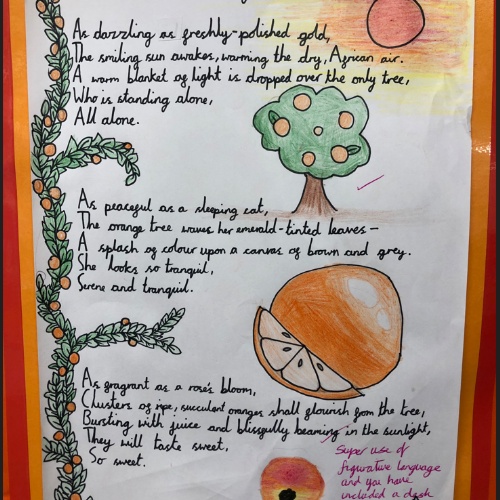 As dazzling as freshly-polished gold,
The smiling sun awakes, warming the dry, African air.
A warm blanket of light is dropped over the only tree,
Who is standing alone,
All alone.
As peaceful as a sleeping cat,
The orange tree waves her emerald-tinted leaves –
A splash of colour upon a canvas of brown and grey.
She looks so tranquil,
Serene and tranquil.
As fragrant as a rose's bloom,
Clusters of ripe, succulent oranges shall flourish from the tree,
Bursting with juice and blissfully beaming in the sunlight,
They will taste sweet,
So sweet.
Super use of
figurative language
and you have
included a dash